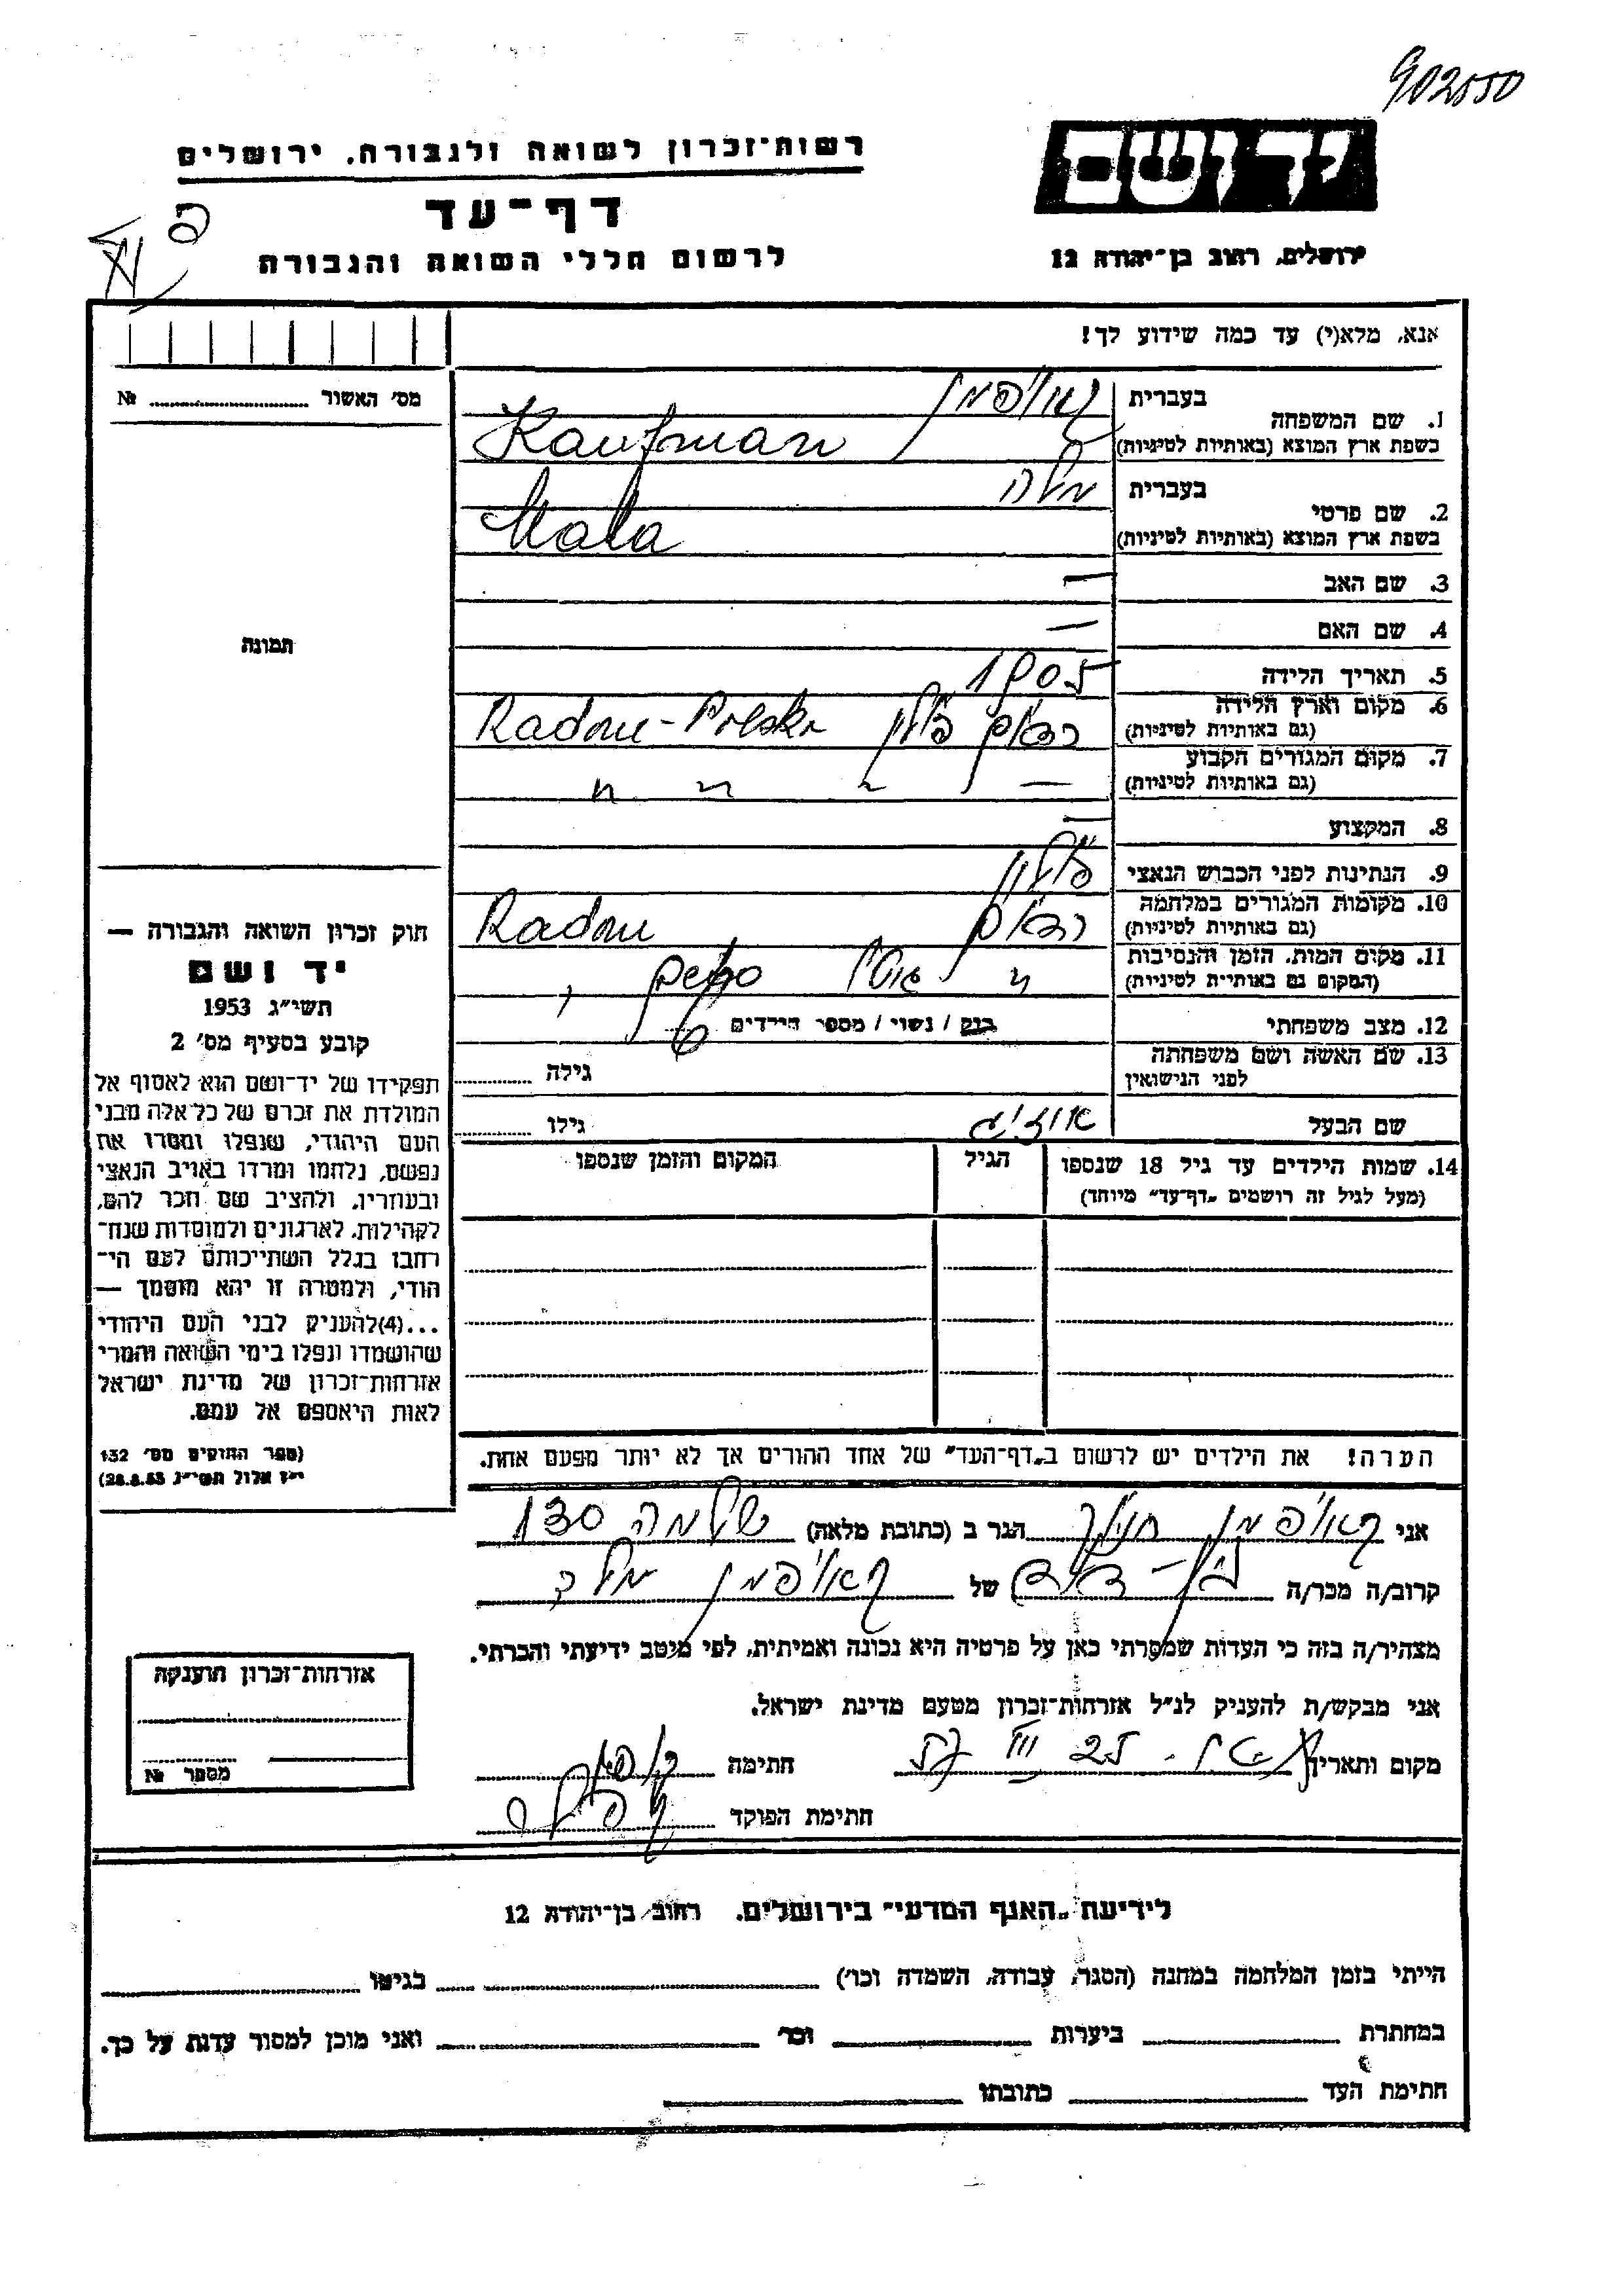 902550
יד ושם
ירושלים, רחוב בן-יהודה 12
רשות-זכרון לשואה ולגבורה, ירושלים
דף-עד
לרשום חללי השואה והגבורה
אנא, מלא(י) עד כמה שידוע לך!
מס' האשור № 
תמונה
1. שם המשפחה
בעברית קאופמן
בשפת ארץ המוצא (באותיות לטיניות) Kaufman
2. שם פרטי
בעברית מלה
בשפת ארץ המוצא (באותיות לטיניות) Mala
3. שם האב —
4. שם האם —
5. תאריך הלידה 1905
6. מקום וארץ הלידה
(גם באותיות לטיניות) ראדום פולין Radom - Polska
7. מקום המגורים הקבוע
(גם באותיות לטיניות) — " " " "
8. המקצוע —
9. הנתינות לפני הכבוש הנאצי פולין
10. מקומות המגורים במלחמה
(גם באותיות לטיניות) ראדום Radom
11. מקום המות, הזמן והנסיבות
(המקום גם באותיות לטיניות)
12. מצב משפחתי רווק / נשוי / מספר הילדים 6
13. שם האשה ושם משפחתה
לפני הנישואין גילה
שם הבעל גילו
14. שמות הילדים עד גיל 18 שנספו
(מעל לגיל זה רושמים "דף-עד" מיוחד)
הגיל
המקום והזמן שנספו
הערה! את הילדים יש לרשום ב"דף-העד" של אחד ההורים אך לא יותר מפעם אחת.
חוק זכרון השואה והגבורה —
יד ושם
תשי"ג 1953
קובע בסעיף מס' 2
תפקידו של יד-ושם הוא לאסוף אל
המולדת את זכרם של כל אלה מבני
העם היהודי, שנפלו ומסרו את
נפשם, נלחמו ומרדו באויב הנאצי
ובעוזריו, ולהציב שם וזכר להם,
לקהילות, לארגונים ולמוסדות שנח-
רחבו בגלל השתייכותם לעם הי-
הודי, ולמטרה זו יהא מוסמך —
...(4) להעניק לבני העם היהודי
שהושמדו ונפלו בימי השואה והמרי
אזרחות-זכרון של מדינת ישראל
לאות היאספם אל עמם.
(ספר החוקים מס' 132
י"ז אלול תשי"ג 28.8.53)
אני קאופמן חנוך הגר ב (כתובת מלאה) שלמה 130
קרוב/ה מכר/ה בן-דוד של קאופמן מלה
מצהיר/ה בזה כי העדות שמסרתי כאן על פרטיה היא נכונה ואמיתית, לפי מיטב ידיעתי והכרתי.
אני מבקש/ת להעניק לנ"ל אזרחות-זכרון מטעם מדינת ישראל.
מקום ותאריך חתימה
חתימת הפוקד
אזרחות-זכרון הוענקה
מספר №
לידיעת "האגף המדעי" בירושלים, רחוב בן-יהודה 12
הייתי בזמן המלחמה במחנה (הסגר, עבודה, השמדה וכו') בגיטו
במחתרת ביערות וכו' ואני מוכן למסור עדות על כך.
חתימת העד כתובתו